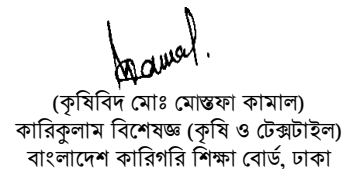 (কৃষিবিদ মোঃ মোস্তফা কামাল)
কারিকুলাম বিশেষজ্ঞ (কৃষি ও টেক্সটাইল)
বাংলাদেশ কারিগরি শিক্ষা বোর্ড, ঢাকা